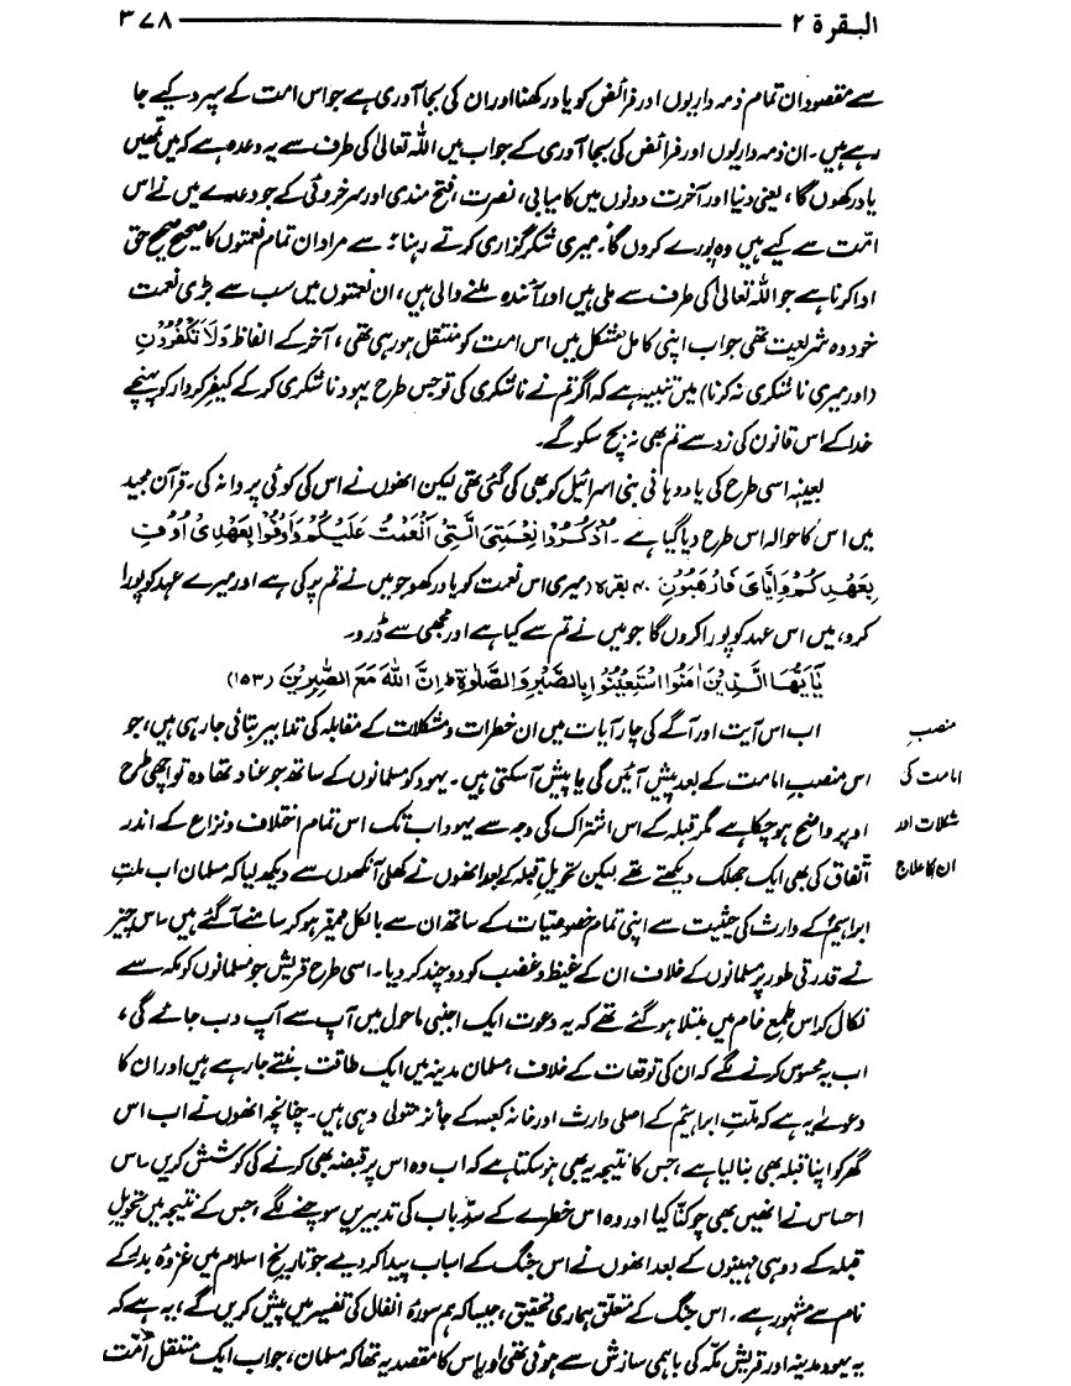 البقرة ۲ ۳۷۸
سے مقصود ان تمام ذمہ داریوں اور فرائض کو یاد رکھنا اور ان کی بجا آوری ہے جو اس امت کے سپرد کیے جا
رہے ہیں۔ ان ذمہ داریوں اور فرائض کی بجا آوری کے جواب میں اللہ تعالیٰ کی طرف سے یہ وعدہ ہے کہ میں تمھیں
یاد رکھوں گا، یعنی دنیا اور آخرت دونوں میں کامیابی، نصرت، فتح مندی اور سرخروئی کے جو وعدے میں نے اس
امّت سے کیے ہیں وہ پورے کروں گا۔ میری شکر گزاری کرتے رہنا، سے مراد ان تمام نعمتوں کا صحیح صحیح حق
ادا کرنا ہے جو اللہ تعالیٰ کی طرف سے ملی ہیں اور آئندہ ملنے والی ہیں، ان نعمتوں میں سب سے بڑی نعمت
خود وہ شریعت تھی جو اب اپنی کامل شکل میں اس امت کو منتقل ہو رہی تھی، آخر کے الفاظ وَلَا تَكْفُرُوْنِ
(اور میری ناشکری نہ کرنا) میں تنبیہ ہے کہ اگر تم نے ناشکری کی تو جس طرح یہود ناشکری کر کے کیفر کردار کو پہنچے
خدا کے اس قانون کی زد سے تم بھی نہ بچ سکو گے۔
بعینہٖ اسی طرح کی یاد دہانی بنی اسرائیل کو بھی کی گئی تھی لیکن انھوں نے اس کی کوئی پروا نہ کی۔ قرآن مجید
میں اس کا حوالہ اس طرح دیا گیا ہے۔ اُذْكُرُوْا نِعْمَتِيَ الَّتِيْ اَنْعَمْتُ عَلَيْكُمْ وَاَوْفُوْا بِعَهْدِيْ اُوْفِ
بِعَهْدِكُمْ وَاِيَّايَ فَارْهَبُوْنِ ۴۰ بقرہ (میری اس نعمت کو یاد رکھو جو میں نے تم پر کی ہے اور میرے عہد کو پورا
کرو، میں اس عہد کو پورا کروں گا جو میں نے تم سے کیا ہے اور مجھی سے ڈرو۔
يٰٓاَيُّهَا الَّذِيْنَ اٰمَنُوا اسْتَعِيْنُوْا بِالصَّبْرِ وَالصَّلٰوةِ ط اِنَّ اللهَ مَعَ الصّٰبِرِيْنَ (۱۵۳)
منصبِ اب اس آیت اور آگے کی چار آیات میں ان خطرات و مشکلات کے مقابلہ کی تدابیر بتائی جا رہی ہیں، جو
امامت کی اس منصبِ امامت کے بعد پیش آئیں گی یا پیش آسکتی ہیں۔ یہود کو مسلمانوں کے ساتھ جو عناد تھا وہ تو اچھی طرح
مشکلات اور اوپر واضح ہو چکا ہے مگر قبلہ کے اس اشتراک کی وجہ سے یہود اب تک اس تمام اختلاف و نزاع کے اندر
ان کا علاج اتّفاق کی بھی ایک جھلک دیکھتے تھے لیکن تحویلِ قبلہ کے بعد انھوں نے کھلی آنکھوں سے دیکھ لیا کہ مسلمان اب ملتِ
ابراہیمؑ کے وارث کی حیثیت سے اپنی تمام خصوصیّات کے ساتھ ان سے بالکل ممیّز ہو کر سامنے آ گئے ہیں۔ اس چیز
نے قدرتی طور پر مسلمانوں کے خلاف ان کے غیظ و غضب کو دوچند کر دیا۔ اسی طرح قریش جو مسلمانوں کو مکہ سے
نکال کر اس طمعِ خام میں مبتلا ہو گئے تھے کہ یہ دعوت ایک اجنبی ماحول میں آپ سے آپ دب جائے گی،
اب یہ محسوس کرنے لگے کہ ان کی توقعات کے خلاف مسلمان مدینہ میں ایک طاقت بنتے جا رہے ہیں اور ان کا
دعویٰ یہ ہے کہ ملّتِ ابراہیمؑ کے اصلی وارث اور خانہ کعبہ کے جائز متولی وہی ہیں۔ چنانچہ انھوں نے اب اس
گھر کو اپنا قبلہ بھی بنا لیا ہے، جس کا نتیجہ یہ بھی ہو سکتا ہے کہ اب وہ اس پر قبضہ بھی کرنے کی کوشش کریں۔ اس
احساس نے انھیں بھی چوکنّا کیا اور وہ اس خطرے کے سدِّ باب کی تدبیریں سوچنے لگے، جس کے نتیجہ میں تحویلِ
قبلہ کے دو ہی مہینوں کے بعد انھوں نے اس جنگ کے اسباب پیدا کر دیے جو تاریخِ اسلام میں غزوۂ بدر کے
نام سے مشہور ہے۔ اس جنگ کے متعلق ہماری تحقیق، جیسا کہ ہم سورۂ انفال کی تفسیر میں پیش کریں گے، یہ ہے کہ
یہ یہود مدینہ اور قریش مکّہ کی باہمی سازش سے ہوئی تھی اور اس کا مقصد یہ تھا کہ مسلمان، جو اب ایک مستقل امّت